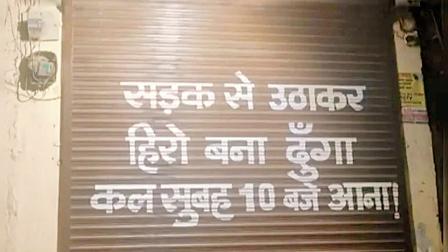 सड़क से उठाकर
हिरो बना दुँगा
कल सुबह 10 बजे आना!